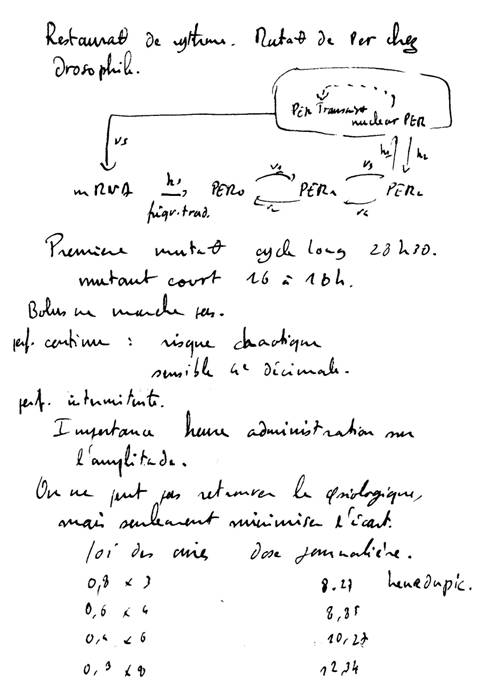 Restaurat de rythme. Mutat de Per chez
drosophile.
PER Transcript
nuclear PER
vs
k1 k2
mRNA ks PER0 v1 v2 PER1 v3 v4 PER2
fréqu. trad.
Première mutat cycle long 28h30.
mutant court 16 à 18h.
Bolus ne marche pas.
perf. continue : risque chaotique
sensible 4e décimale.
perf. intermitente.
Importance heure administration sur
l'amplitude.
On ne peut pas retrouver le physiologique,
mais seulement minimiser l'écart.
loi des aires dose journalière.
0,8 x 3 8.27 heure du pic.
0,6 x 4 8,85
0,4 x 6 10,27
0,3 x 8 12,34